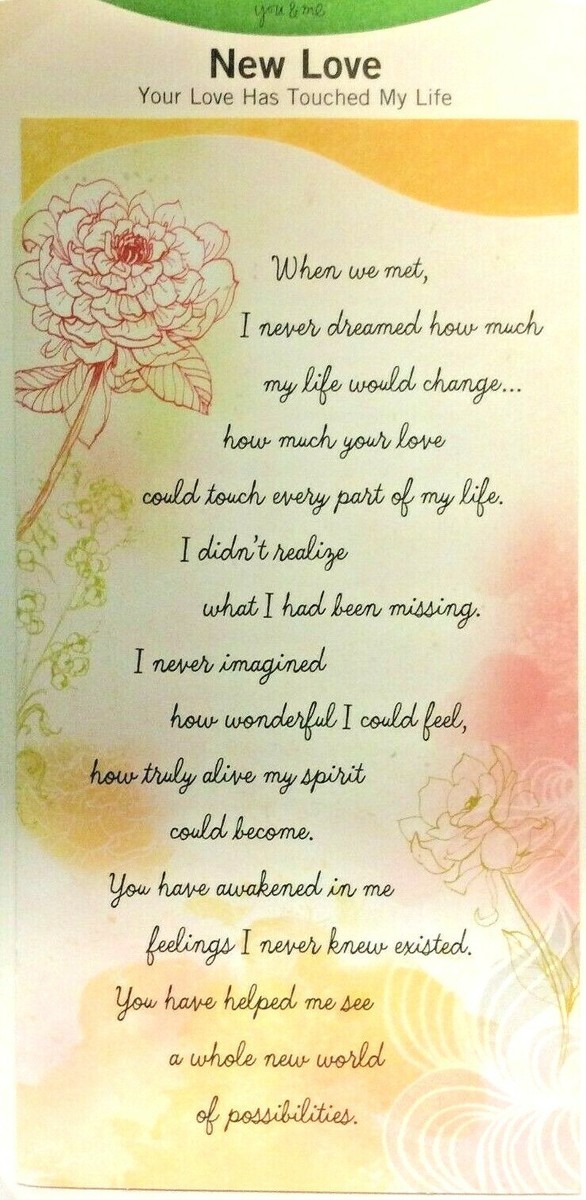 you & me
New Love
Your Love Has Touched My Life
When we met,
I never dreamed how much
my life would change...
how much your love
could touch every part of my life.
I didn't realize
what I had been missing.
I never imagined
how wonderful I could feel,
how truly alive my spirit
could become.
You have awakened in me
feelings I never knew existed.
You have helped me see
a whole new world
of possibilities.